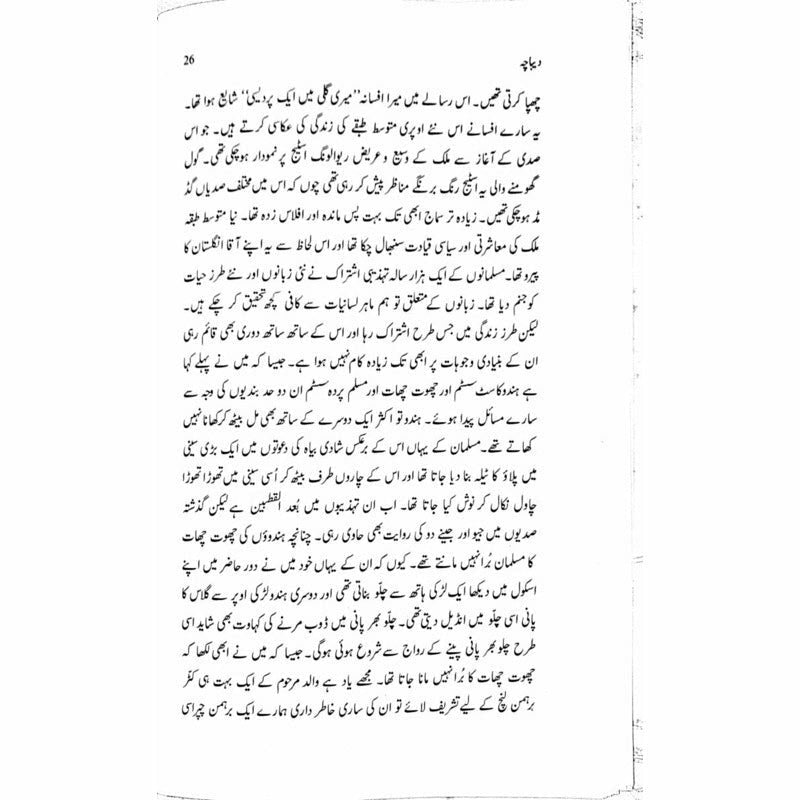 دیباچہ
26
چھپا کرتی تھیں۔ اس رسالے میں میرا افسانہ ’’میری گلی میں ایک پردیسی‘‘ شایع ہوا تھا۔
یہ سارے افسانے اس نئے اوپری متوسط طبقے کی زندگی کی عکاسی کرتے ہیں۔ جو اس
صدی کے آغاز سے ملک کے وسیع و عریض ریوالونگ اسٹیج پر نمودار ہوچکی تھی۔ گول
گھومنے والی یہ اسٹیج رنگ برنگے مناظر پیش کر رہی تھی چوں کہ اس میں مختلف صدیاں گڈ
مڈ ہوچکی تھیں۔ زیادہ تر سماج ابھی تک بہت پس ماندہ اور افلاس زدہ تھا۔ نیا متوسط طبقہ
ملک کی معاشرتی اور سیاسی قیادت سنبھال چکا تھا اور اس لحاظ سے یہ اپنے آقا انگلستان کا
پیرو تھا۔ مسلمانوں کے ایک ہزار سالہ تہذیبی اشتراک نے نئی زبانوں اور نئے طرز حیات
کو جنم دیا تھا۔ زبانوں کے متعلق تو ہم ماہر لسانیات سے کافی کچھ تحقیق کر چکے ہیں۔
لیکن طرز زندگی میں جس طرح اشتراک رہا اور اس کے ساتھ ساتھ دوری بھی قائم رہی
ان کے بنیادی وجوہات پر ابھی تک زیادہ کام نہیں ہوا ہے۔ جیسا کہ میں نے پہلے کہا
ہے ہندو کاسٹ سسٹم اور چھوت چھات اور مسلم پردہ سسٹم ان دو حد بندیوں کی وجہ سے
سارے مسائل پیدا ہوئے۔ ہندو تو اکثر ایک دوسرے کے ساتھ بھی مل بیٹھ کر کھانا نہیں
کھاتے تھے۔ مسلمان کے یہاں اس کے برعکس شادی بیاہ کی دعوتوں میں ایک بڑی سینی
میں پلاؤ کا ٹیلہ بنا دیا جاتا تھا اور اس کے چاروں طرف بیٹھ کر اُسی سینی میں تھوڑا تھوڑا
چاول نکال کر نوش کیا جاتا تھا۔ اب ان تہذیبوں میں بُعد القطبین ہے لیکن گذشتہ
صدیوں میں جیو اور جینے دو کی روایت بھی حاوی رہی۔ چنانچہ ہندوؤں کی چھوت چھات
کا مسلمان بُرا نہیں مانتے تھے۔ کیوں کہ ان کے یہاں خود میں نے دور حاضر میں اپنے
اسکول میں دیکھا ایک لڑکی ہاتھ سے چلّو بناتی تھی اور دوسری ہندو لڑکی اوپر سے گلاس کا
پانی اسی چلّو میں انڈیل دیتی تھی۔ چلّو بھر پانی میں ڈوب مرنے کی کہاوت بھی شاید اسی
طرح چلو بھر پانی پینے کے رواج سے شروع ہوئی ہوگی۔ جیسا کہ میں نے ابھی لکھا کہ
چھوت چھات کا بُرا نہیں مانا جاتا تھا۔ مجھے یاد ہے والد مرحوم کے ایک بہت ہی کٹر
برہمن لنچ کے لیے تشریف لائے تو ان کی ساری خاطر داری ہمارے ایک برہمن چپراسی